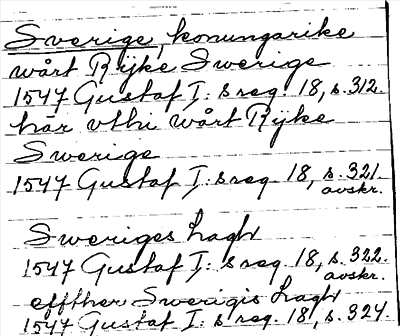 Sverige, konungarike
wårt Rijke Swerige
1547 Gustaf I:s reg. 18, s. 312.
här vthi wårt Rijke
Swerige
1547 Gustaf I:s reg. 18, s. 321.
avskr.
Sweriges Lagh
1547 Gustaf I:s reg. 18, s. 322.
avskr.
effther Swerigis Lagh
1547 Gustaf I:s reg. 18, s. 324.